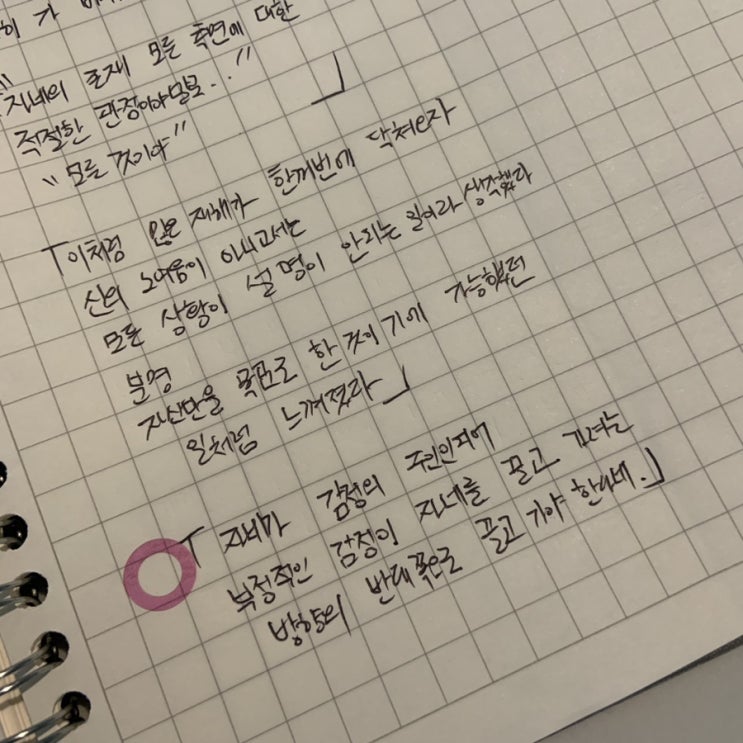 "자네의 존재 모든 측면에 대한
적절한 관점이야말로.."
"모를 것이야"
「이처럼 많은 재해가 한꺼번에 닥쳐오자
신의 노여움이 아니고서는
모든 상황이 설명이 안되는 일이라 생각했다
분명
자신만을 목표로 한 것이기에 가능했던
일처럼 느껴졌다」
「자네가 감정의 주인인지어
부정적인 감정이 자네를 끌고 가려는
방향의 반대쪽으로 끌고 가야 한다네.」